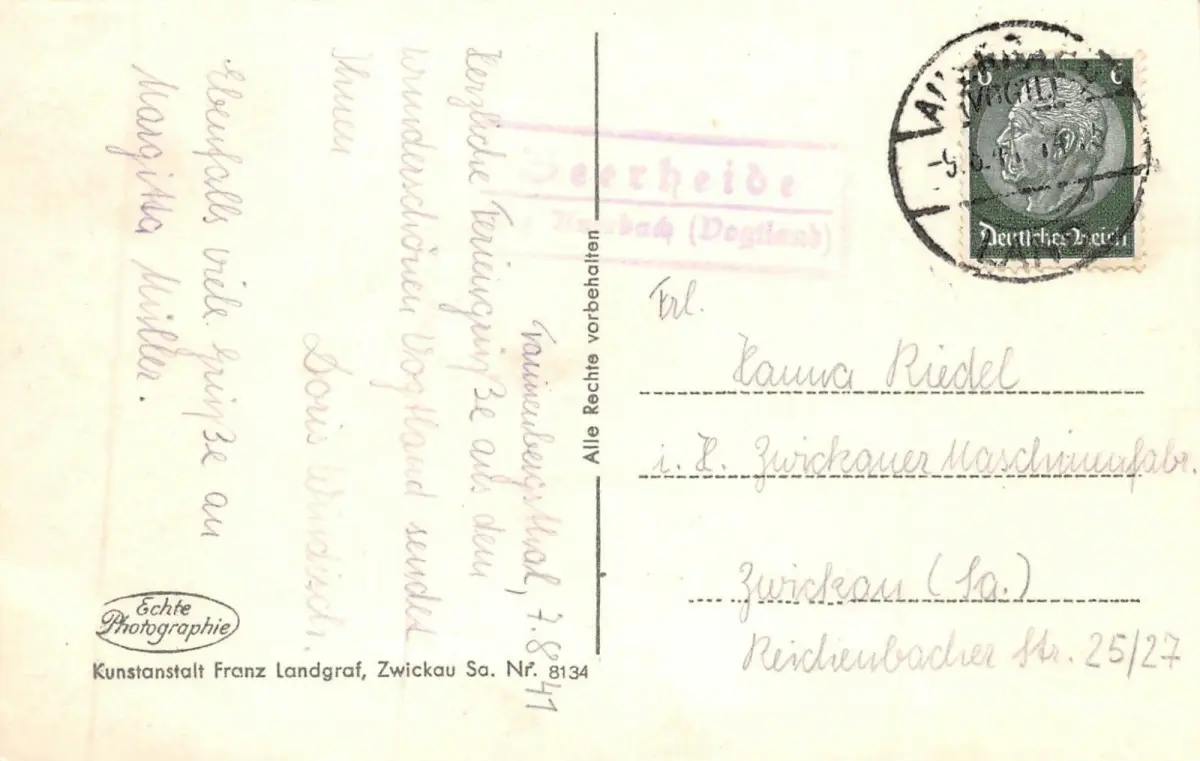 Tannenbergsthal, 7.8.41
Herzliche Feriengrüße aus dem
wunderschönen Vogtland sendet
Ihnen
Doris Windisch.
Ebenfalls viele Grüße an
Margitta Müller.
Echte
Photographie
Kunstanstalt Franz Landgraf, Zwickau Sa. Nr. 8134
Alle Rechte vorbehalten
Beerheide
Auerbach (Vogtland)
(VOGTL)
6 6
Deutsches Reich
Frl.
Hanna Riedel
i. H. Zwickauer Maschinenfabr.
Zwickau (Sa.)
Reichenbacher Str. 25/27